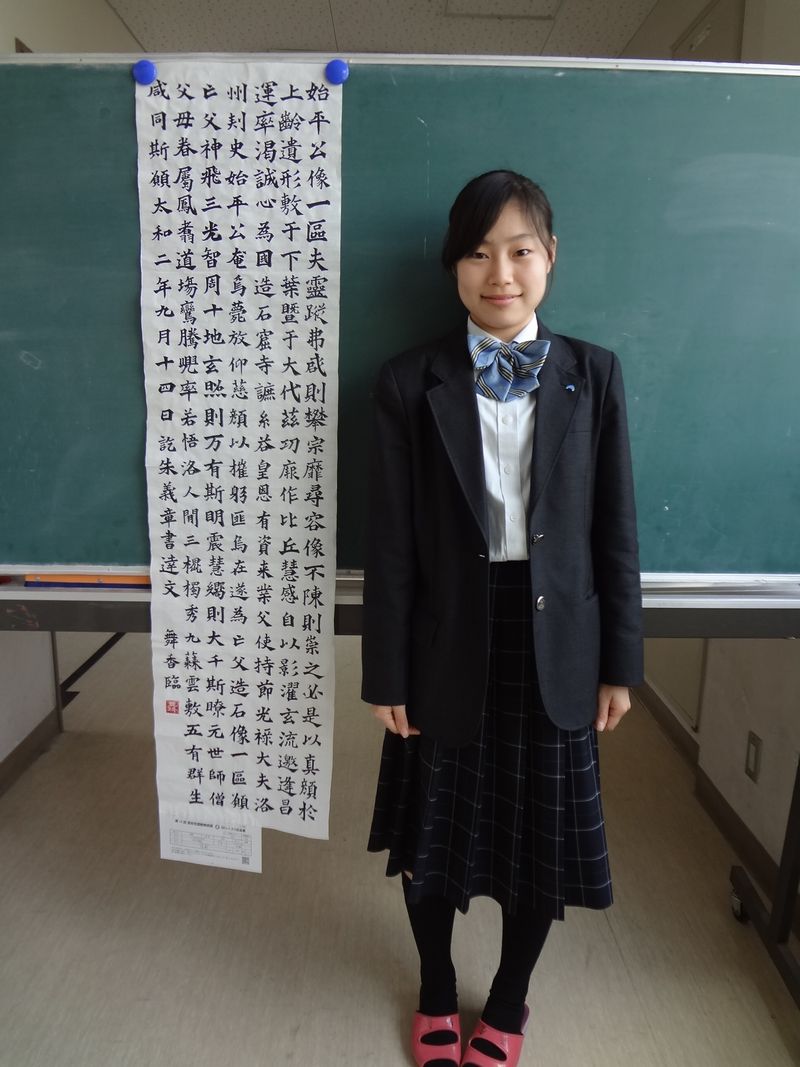 始平公像一區夫靈蹤弗啟則攀宗靡尋容像不陳則崇之必是以真顏於
上齡遺形敷于下葉暨于大代茲功厥作比丘慧感自以影濯玄流邀逢昌
運率渴誠心為國造石窟寺糸荅皇恩有資来業父使持節光祿大夫洛
州刾史始平公奄焉薨放仰慈顏以摧躬匪烏在遂為亡父造石像一區願
亡父神飛三光智周十地玄照則万有斯明震慧嚮則大千斯瞭元世師僧
父母眷屬鳳翥道場鸞騰兜率若悟洛人間三槐獨秀九蕀雲敷五有群生
咸同斯願太和二年九月十四日訖朱義章書達文
舞香臨